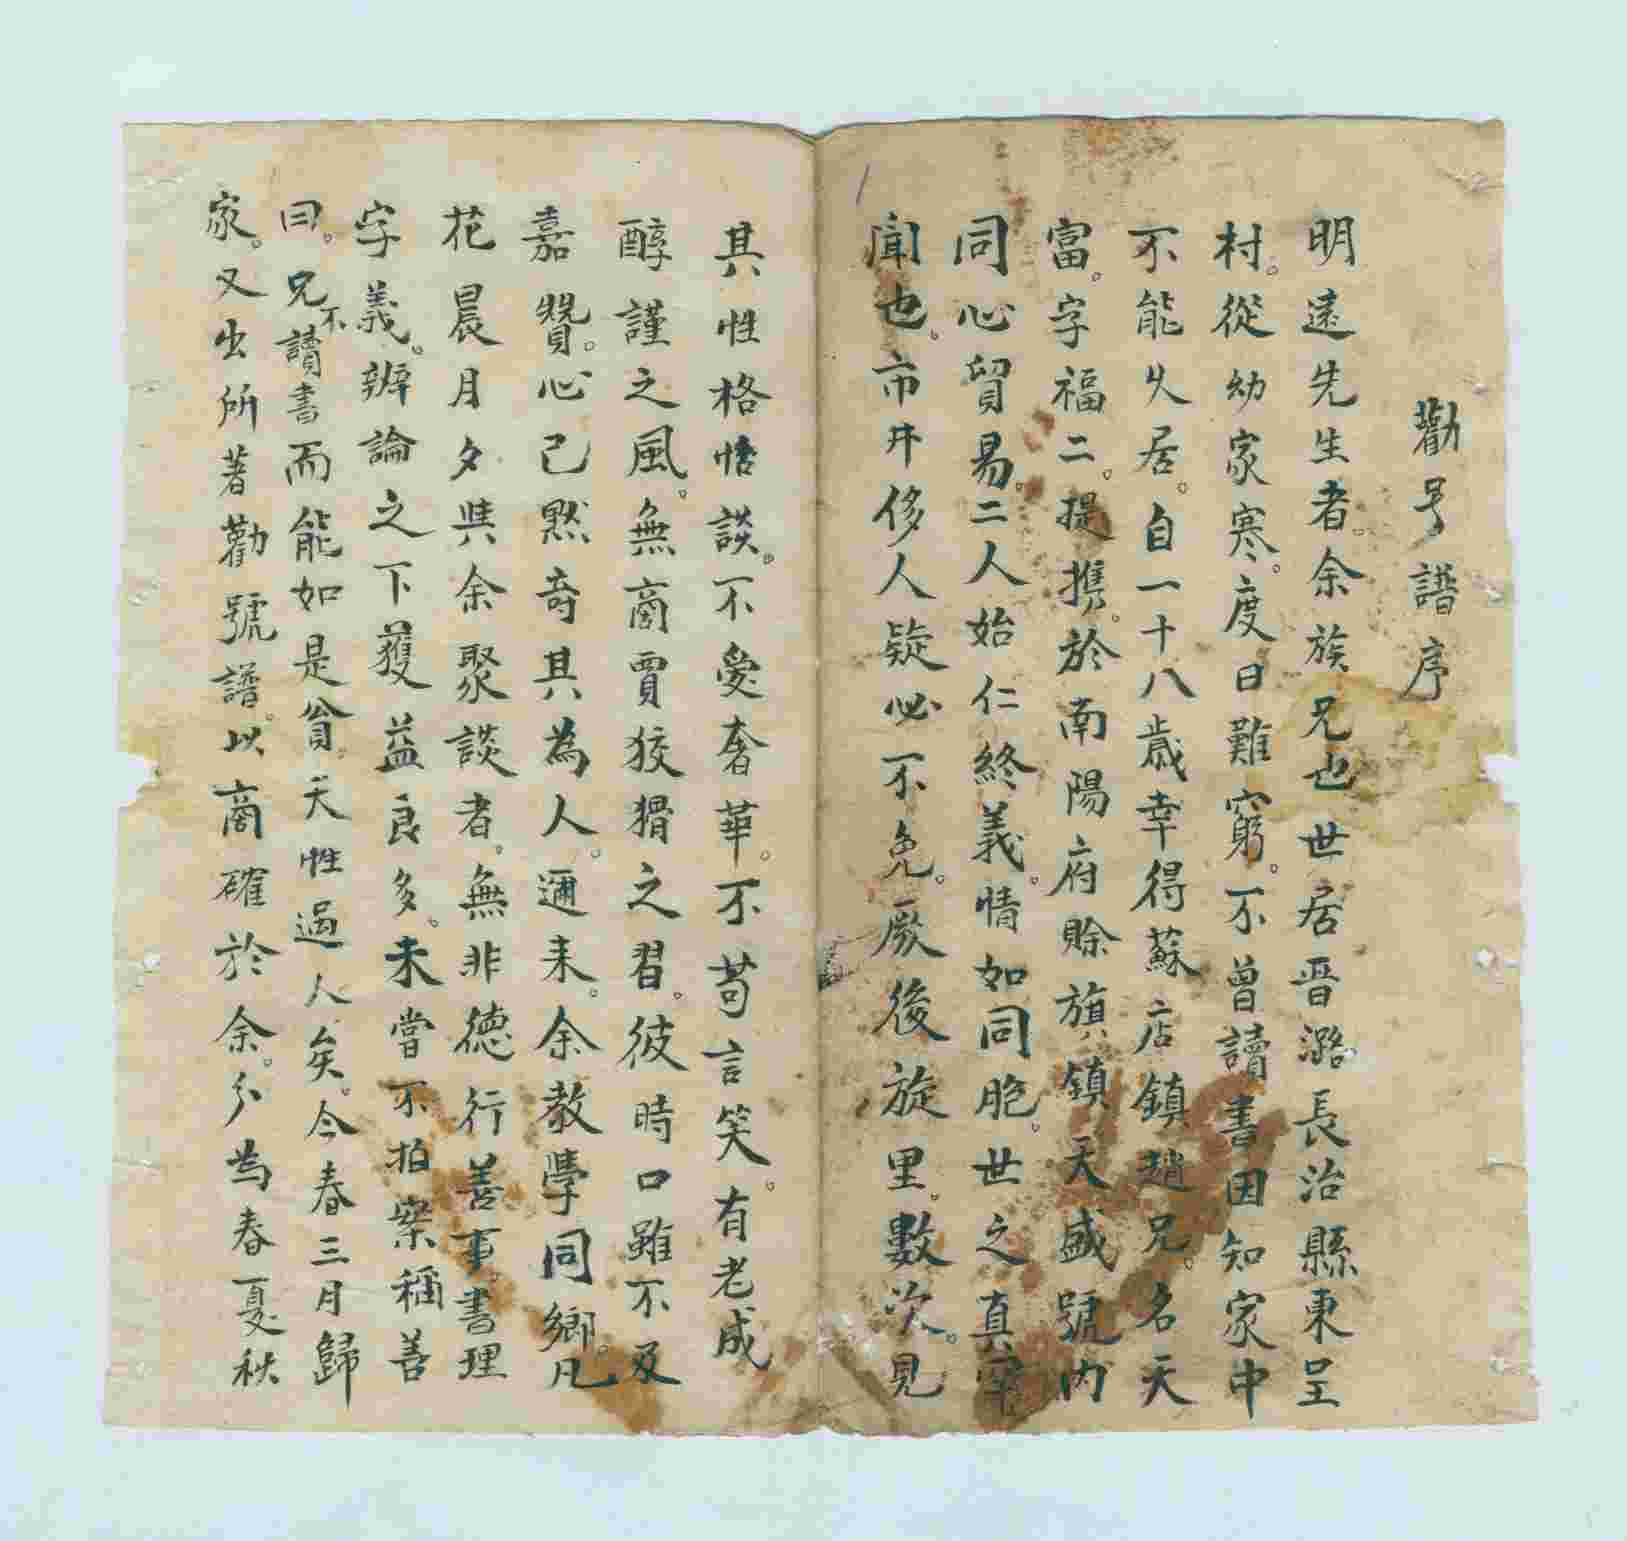 勸号譜序
明遠先生者。余族兄也世居晋潞長治縣東呈
村。從幼家寒。度日難窮。不曾讀書因知家中
不能久居。自一十八歲幸得蘇店鎮趙兄。名天
富。字福二。提携。於南陽府賒旗鎮天盛號內
同心貿易。二人始仁終義。情如同胞。世之真罕
聞也。市井侈人疑必不免。厥後旋里。數次。見
其性格恬談。不愛奢華。不苟言笑。有老成
醇謹之風。無商賈狡猾之習。彼時口雖不及
嘉贊。心已默奇其為人。邇来。余教學同鄉。凡
花晨月夕與余聚談者。無非德行善事。書理
字義。辨論之下獲益良多。未嘗不拍案稱善
曰。兄不讀書而能如是耶天性過人矣。今春三月歸
家。又出所著勸號譜。以商確於余。分為春夏秋